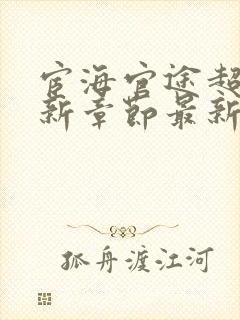 宦海官途超
新章节最新
孤舟渡江河